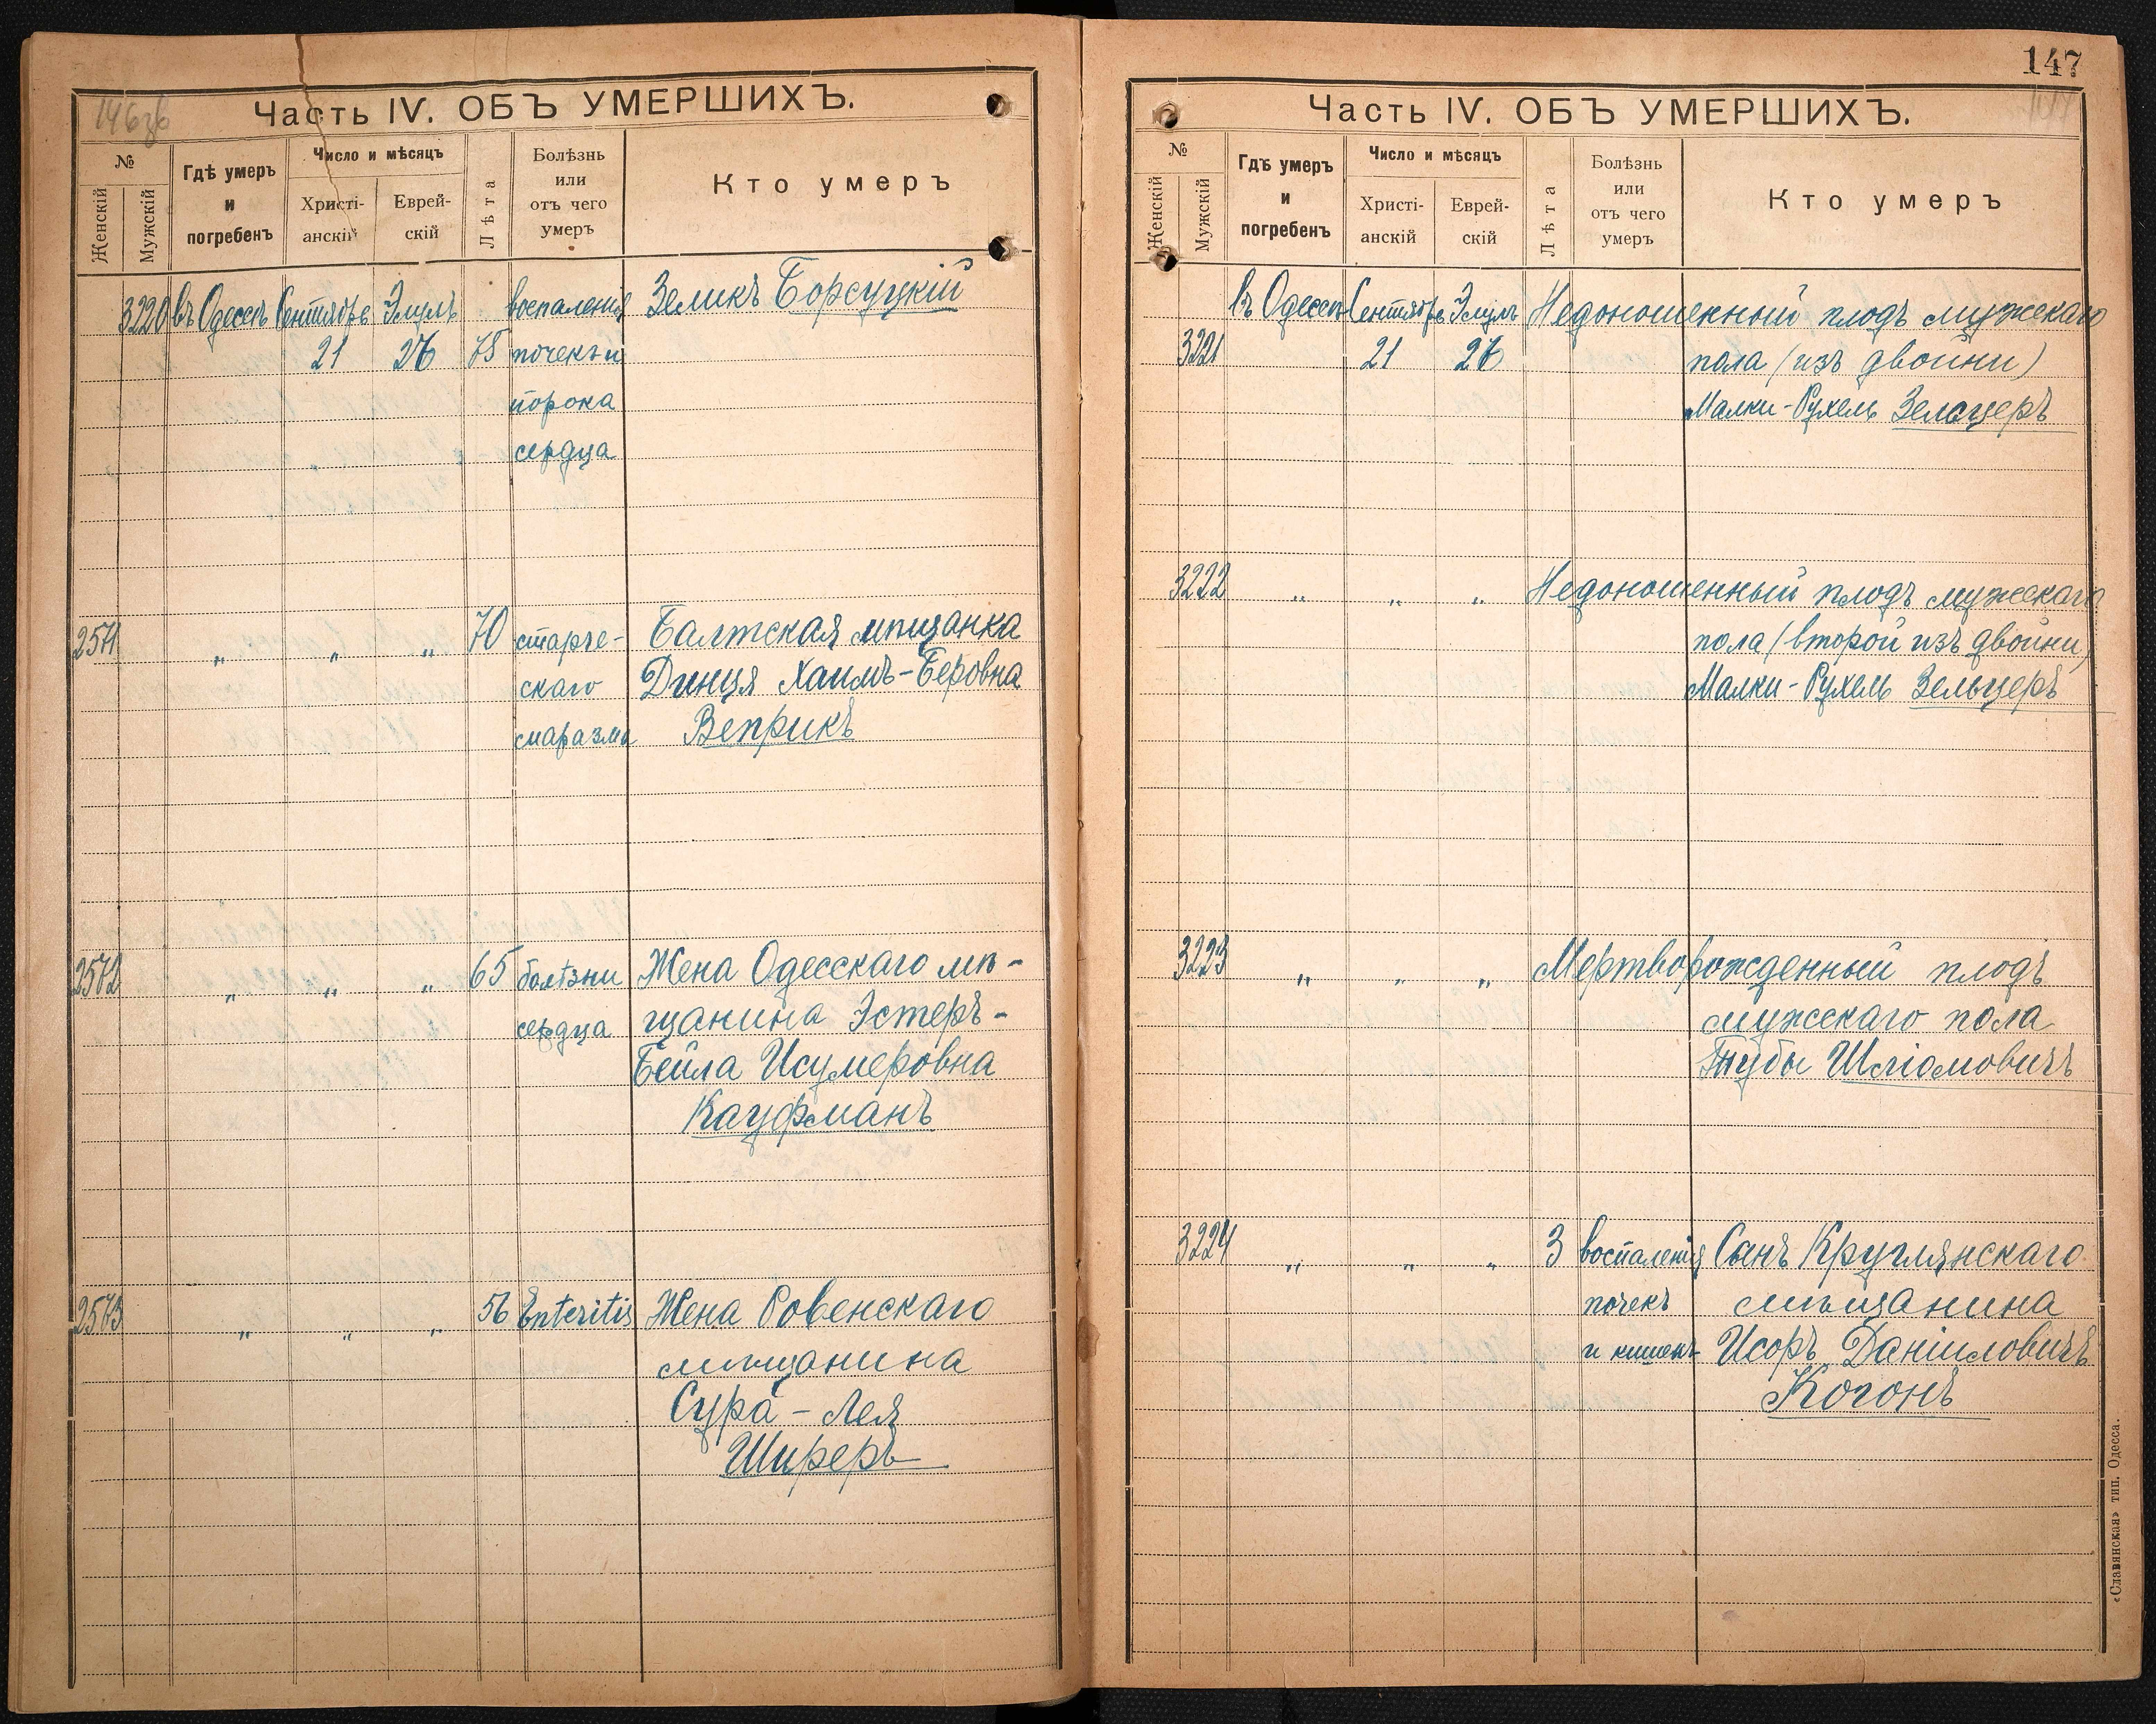 146об
Часть IV. ОБЪ УМЕРШИХЪ.
№
Женскій
Мужскій
Гдѣ умеръ
и
погребенъ
Число и мѣсяцъ
Христі-
анскій
Еврей-
скій
Лѣта
Болѣзнь
или
отъ чего
умеръ
Кто умеръ
3220 въ Одессѣ Сентябрь Элулъ воспаленія Зеликъ Борсуцкій
21 26 75 почекъ и
порока
сердца
2571 „ „ „ 70 старче- Балтская мѣщанка
скаго Динця Хаимъ-Беровна
маразма Веприкъ
2572 „ „ „ 65 болѣзни Жена Одесскаго мѣ-
сердца щанина Эстеръ-
Бейла Исумеровна
Кауфманъ
2573 „ „ „ 56 Enteritis Жена Ровенскаго
мѣщанина
Сура-Лея
Ширеръ
147
Часть IV. ОБЪ УМЕРШИХЪ.
№
Женскій
Мужскій
Гдѣ умеръ
и
погребенъ
Число и мѣсяцъ
Христі-
анскій
Еврей-
скій
Лѣта
Болѣзнь
или
отъ чего
умеръ
Кто умеръ
въ Одессѣ Сентябрь Элулъ Недоношенный плодъ мужскаго
3221 21 26 пола (изъ двойни)
Малки-Рухель Зельцеръ
3222 „ „ „ Недоношенный плодъ мужскаго
пола (второй изъ двойни)
Малки-Рухель Зельцеръ
3223 „ „ „ Мертворожденный плодъ
мужскаго пола
Шліомовичъ
3224 „ „ „ 3 воспаленія Сынъ Круглянскаго
почекъ мѣщанина
и кишекъ Исоръ Даніиловичъ
Когонъ
«Славянская» тип. Одесса.